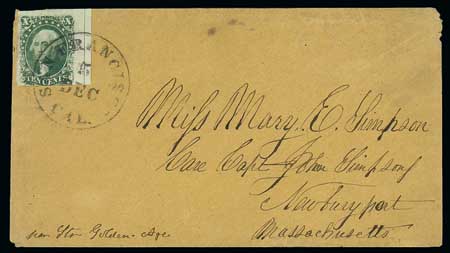 X X
TEN CENTS
SAN FRANCISCO
5
DEC
CAL.
Miss Mary E. Simpson
Care Capt John Simpson
Newburyport
Massachusetts
per Stmr Golden Age